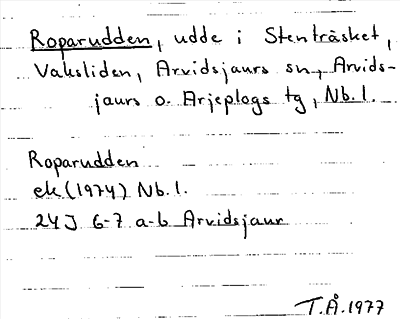 Roparudden, udde i Stenträsket,
Vaksliden, Arvidsjaurs sn, Arvids-
jaurs o. Arjeplogs tg, Nb.l.
Roparudden
ek (1974) Nb.l.
24J 6-7 a-b Arvidsjaur
T.Å.1977